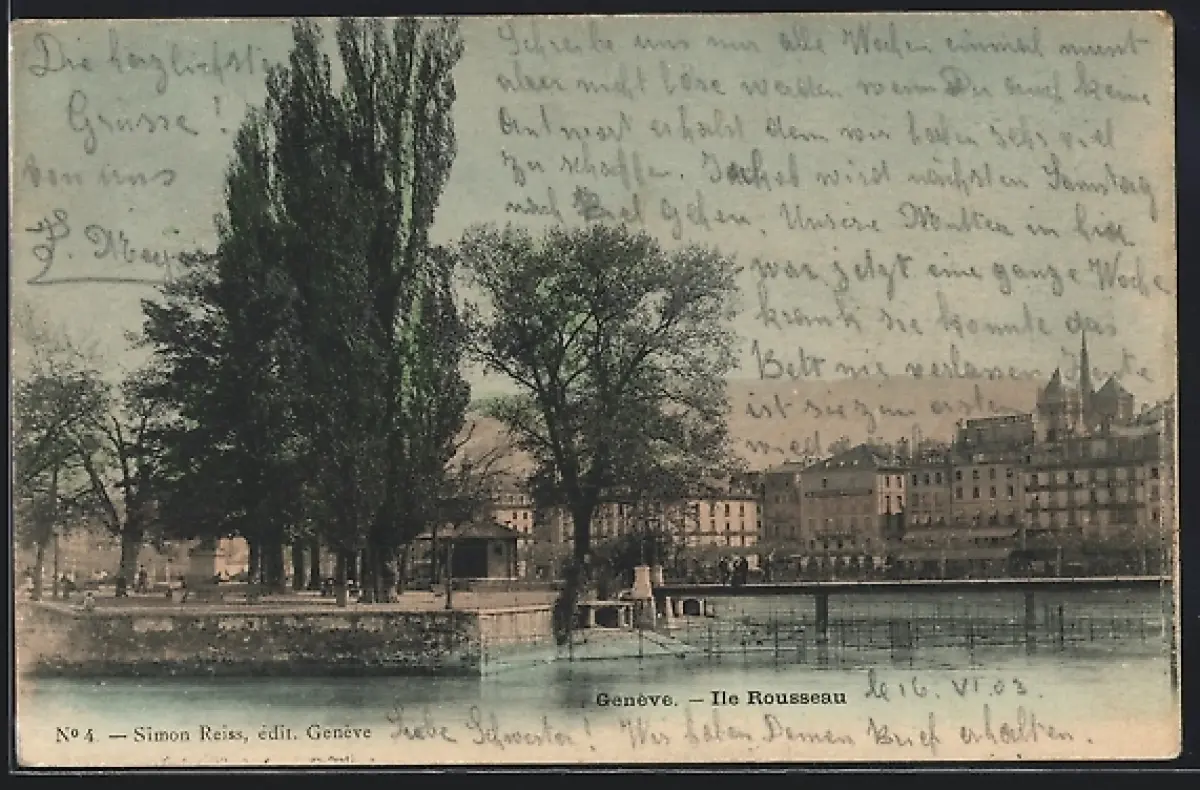 Die herzlichsten
Grüsse!
von uns
J. Meyer
Schreibe uns nur alle Wochen einmal musst
aber nicht böse werden wenn Du auch keine
Antwort erhalst denn wir haben sehr viel
zu schaffen. wird nächsten Samstag
nach Biel gehen. Unsere Mutter in
war jetzt eine ganze Woche
krank sie konnte das
Bett nie verlassen Heute
ist sie zum ersten
Genève. – Ile Rousseau le 16. VI. 03.
Nº 4 – Simon Reiss, édit. Genève Liebe Schwester! Wir haben Deinen Brief erhalten.